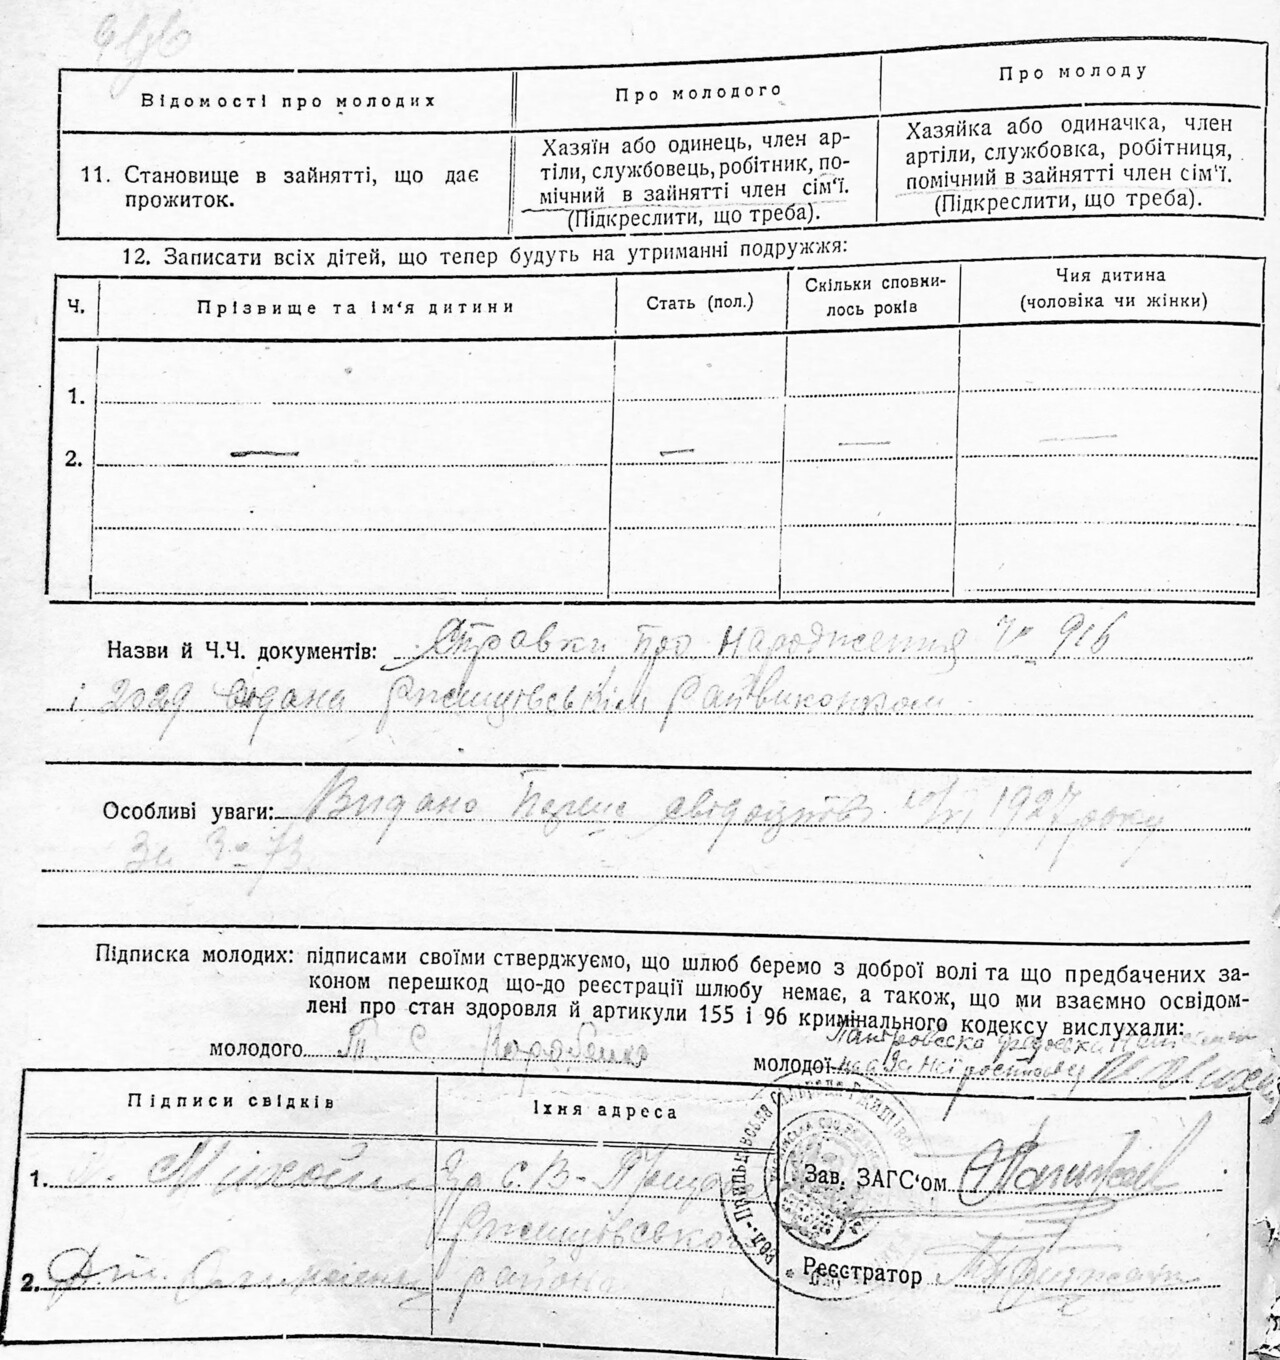 Відомості про молодих
Про молодого
Про молоду
11. Становище в зайнятті, що дає
прожиток.
Хазяїн або одинець, член ар-
тіли, службовець, робітник, по-
мічний в зайнятті член сім'ї.
(Підкреслити, що треба).
Хазяйка або одиначка, член
артіли, службовка, робітниця,
помічний в зайнятті член сім'ї.
(Підкреслити, що треба).
12. Записати всіх дітей, що тепер будуть на утриманні подружжя:
Ч.
Прізвище та ім'я дитини
Стать (пол.)
Скільки сповни-
лось років
Чия дитина
(чоловіка чи жінки)
1.
2. — — — —
Назви й Ч.Ч. документів: Справки про народження 916
і 2029 видана Ржищівським Райвиконком
Особливі уваги: Видано свідоцтво 1927 року
За № 73
Підписка молодих: підписами своїми стверджуємо, що шлюб беремо з доброї волі та що предбачених за-
коном перешкод що-до реєстрації шлюбу немає, а також, що ми взаємно освідом-
лені про стан здоровля й артикули 155 і 96 кримінального кодексу вислухали:
молодого Т. С. Коробенко
молодої
Підписи свідків
Їхня адреса
1.
Гр. с. В-
Ржищівського
2.
района
Зав. ЗАГС'ом
Реєстратор